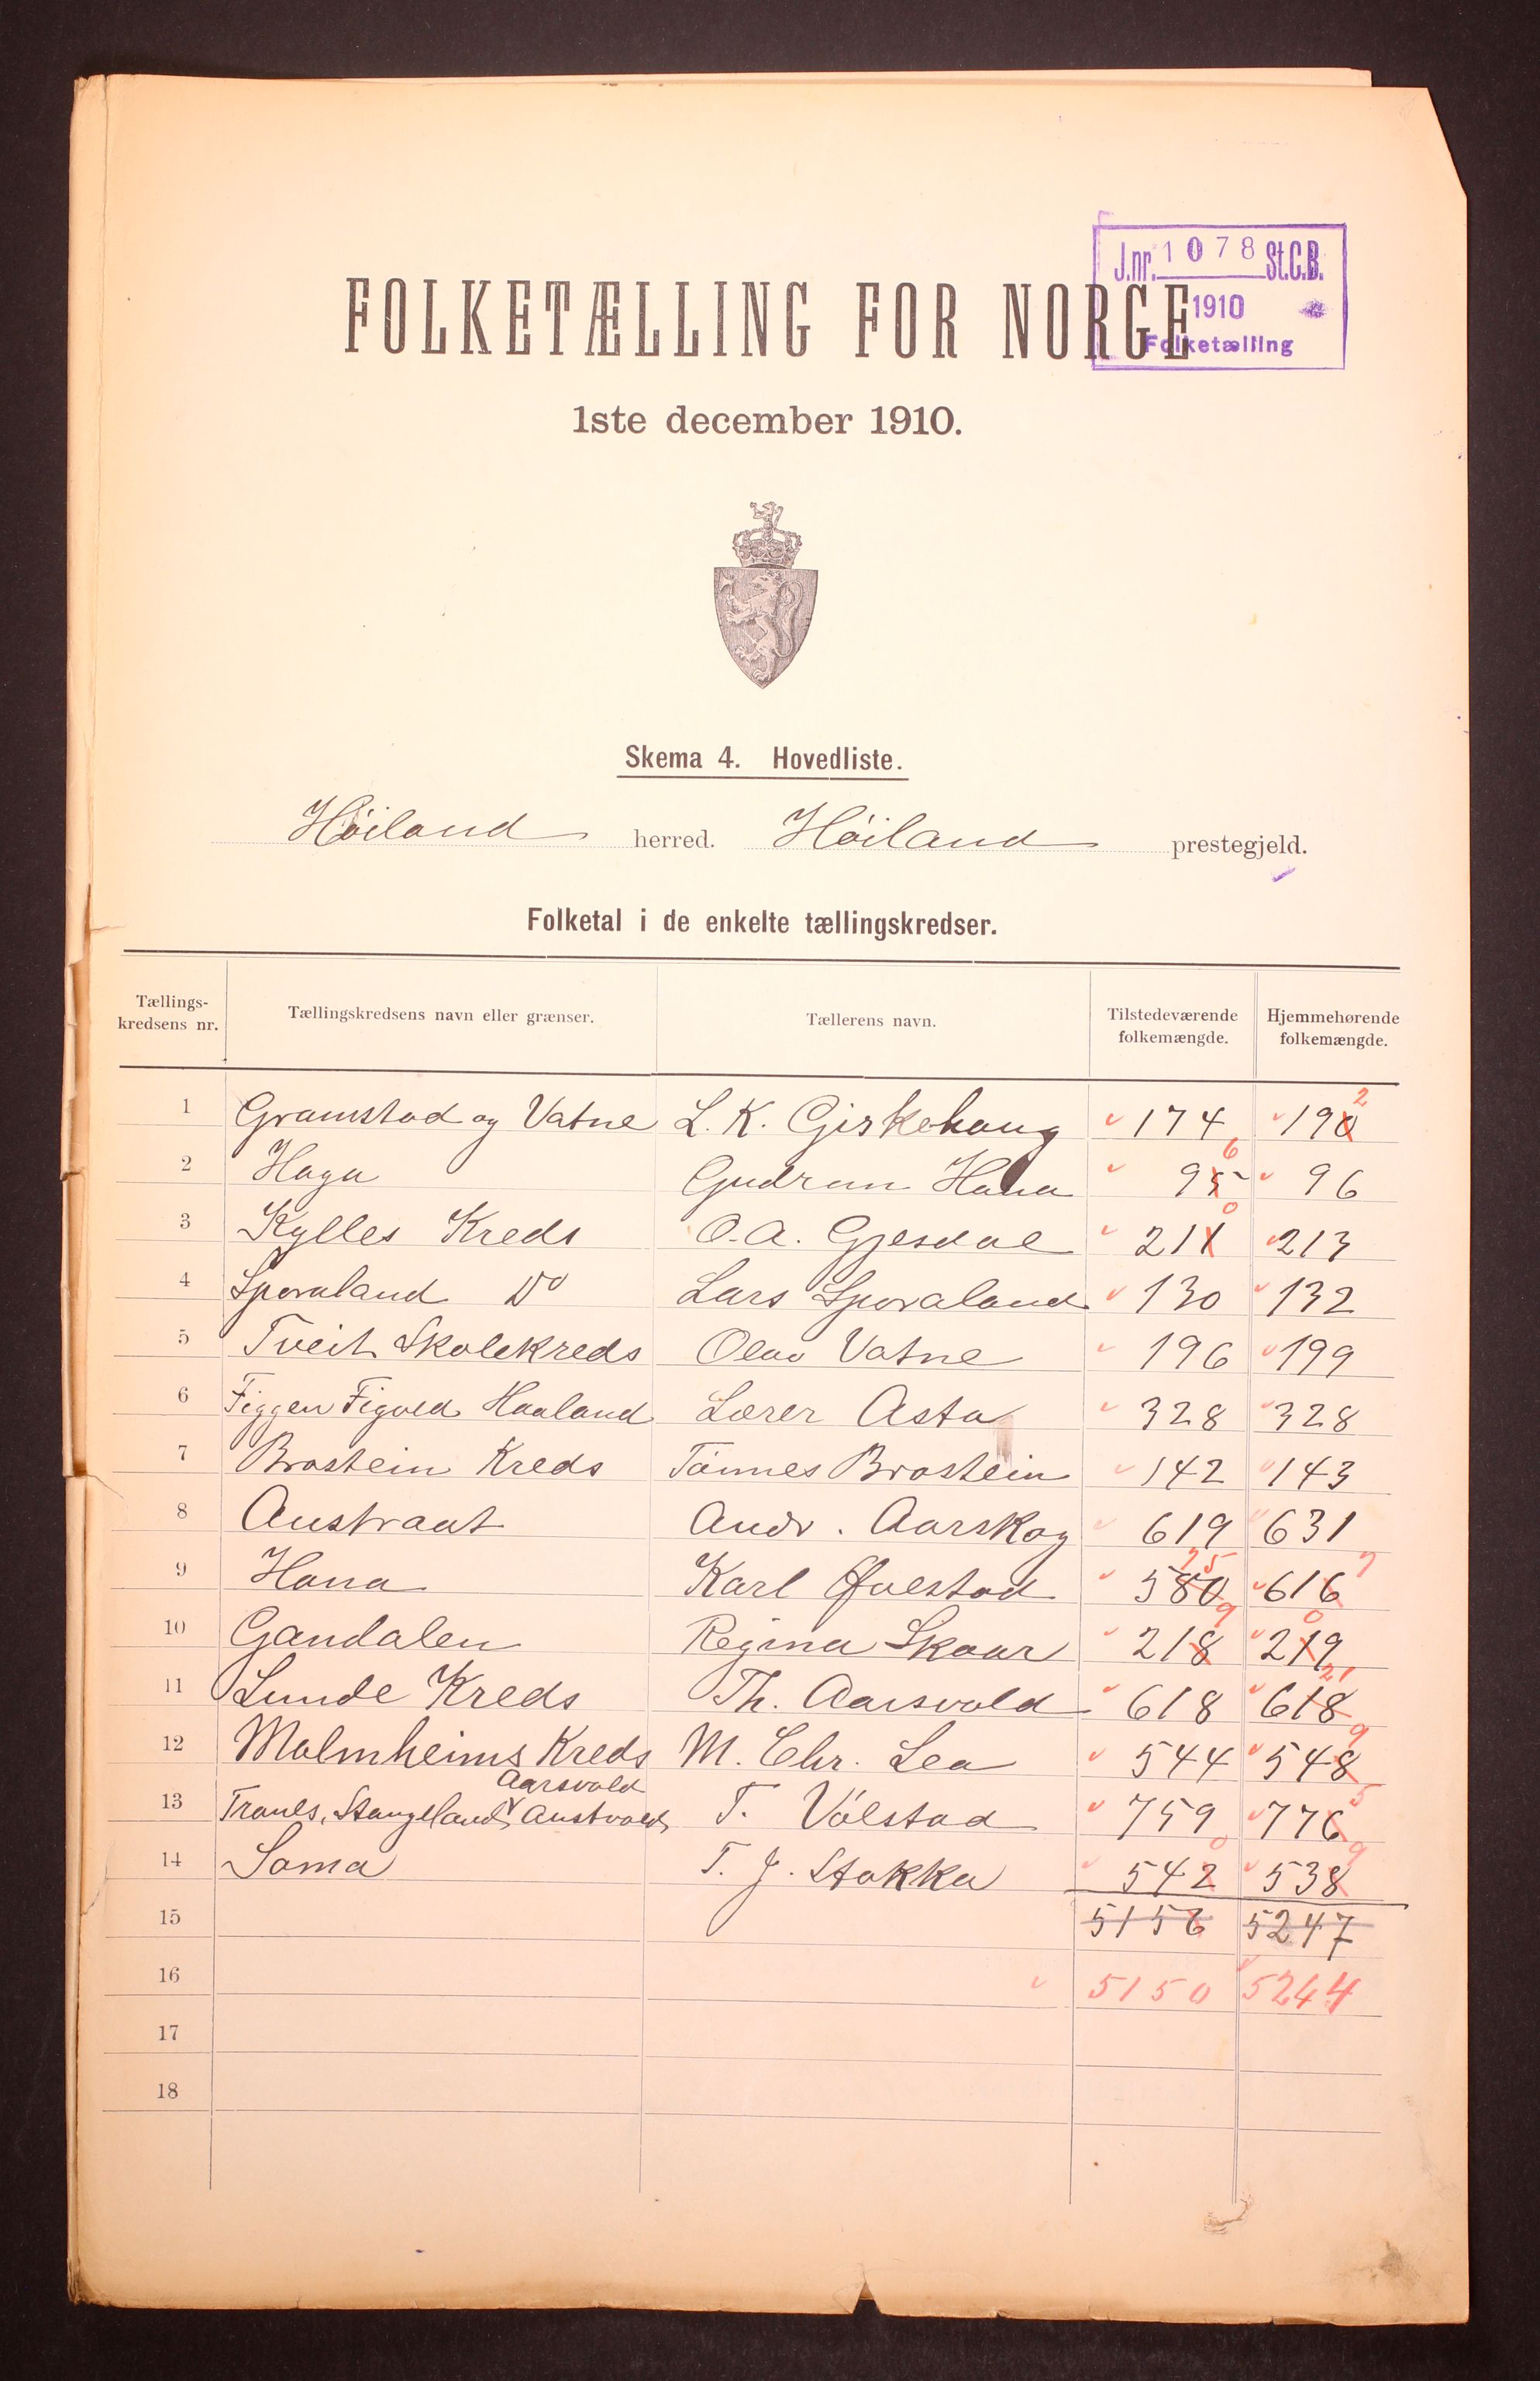 J.nr. 1078 St.C.B.
1910
Folketælling
FOLKETÆLLING FOR NORGE
1ste december 1910.
Skema 4. Hovedliste.
Høiland herred. Høiland prestegjeld.
Folketal i de enkelte tællingskredser.
Tællings-kredsens nr. Tællingskredsens navn eller grænser. Tællerens navn. Tilstedeværende folkemængde. Hjemmehørende folkemængde.
1 Gramstad og Vatne L. K. Girkehaug 174 190 2
2 Hogu Gudrun Hana 95 6 96
3 Kylles Kreds O. A. Gjesdal 211 0 213
4 Sporaland Do Lars Sporaland 130 132
5 Tveit Skolekreds Olav Vatne 196 199
6 Figgen Figved Haaland Lærer Asta 328 328
7 Brostein Kreds Tönnes Brostein 142 143
8 Austraat Andr. Aarskog 619 631
9 Hana Karl Øvestad 580 75 616 7
10 Gandalen Regina Skaar 218 9 219 0
11 Lunde Kreds Th. Aarsvold 618 618 21
12 Malmheims Kreds M. Chr. Lea 544 548 9
Aarsvold
13 Tranes, Stangeland, Austvold T. Völstad 759 776 5
14 Soma T. J. Stokka 542 0 538 9
15 5156 5247
16 5150 5244
17
18